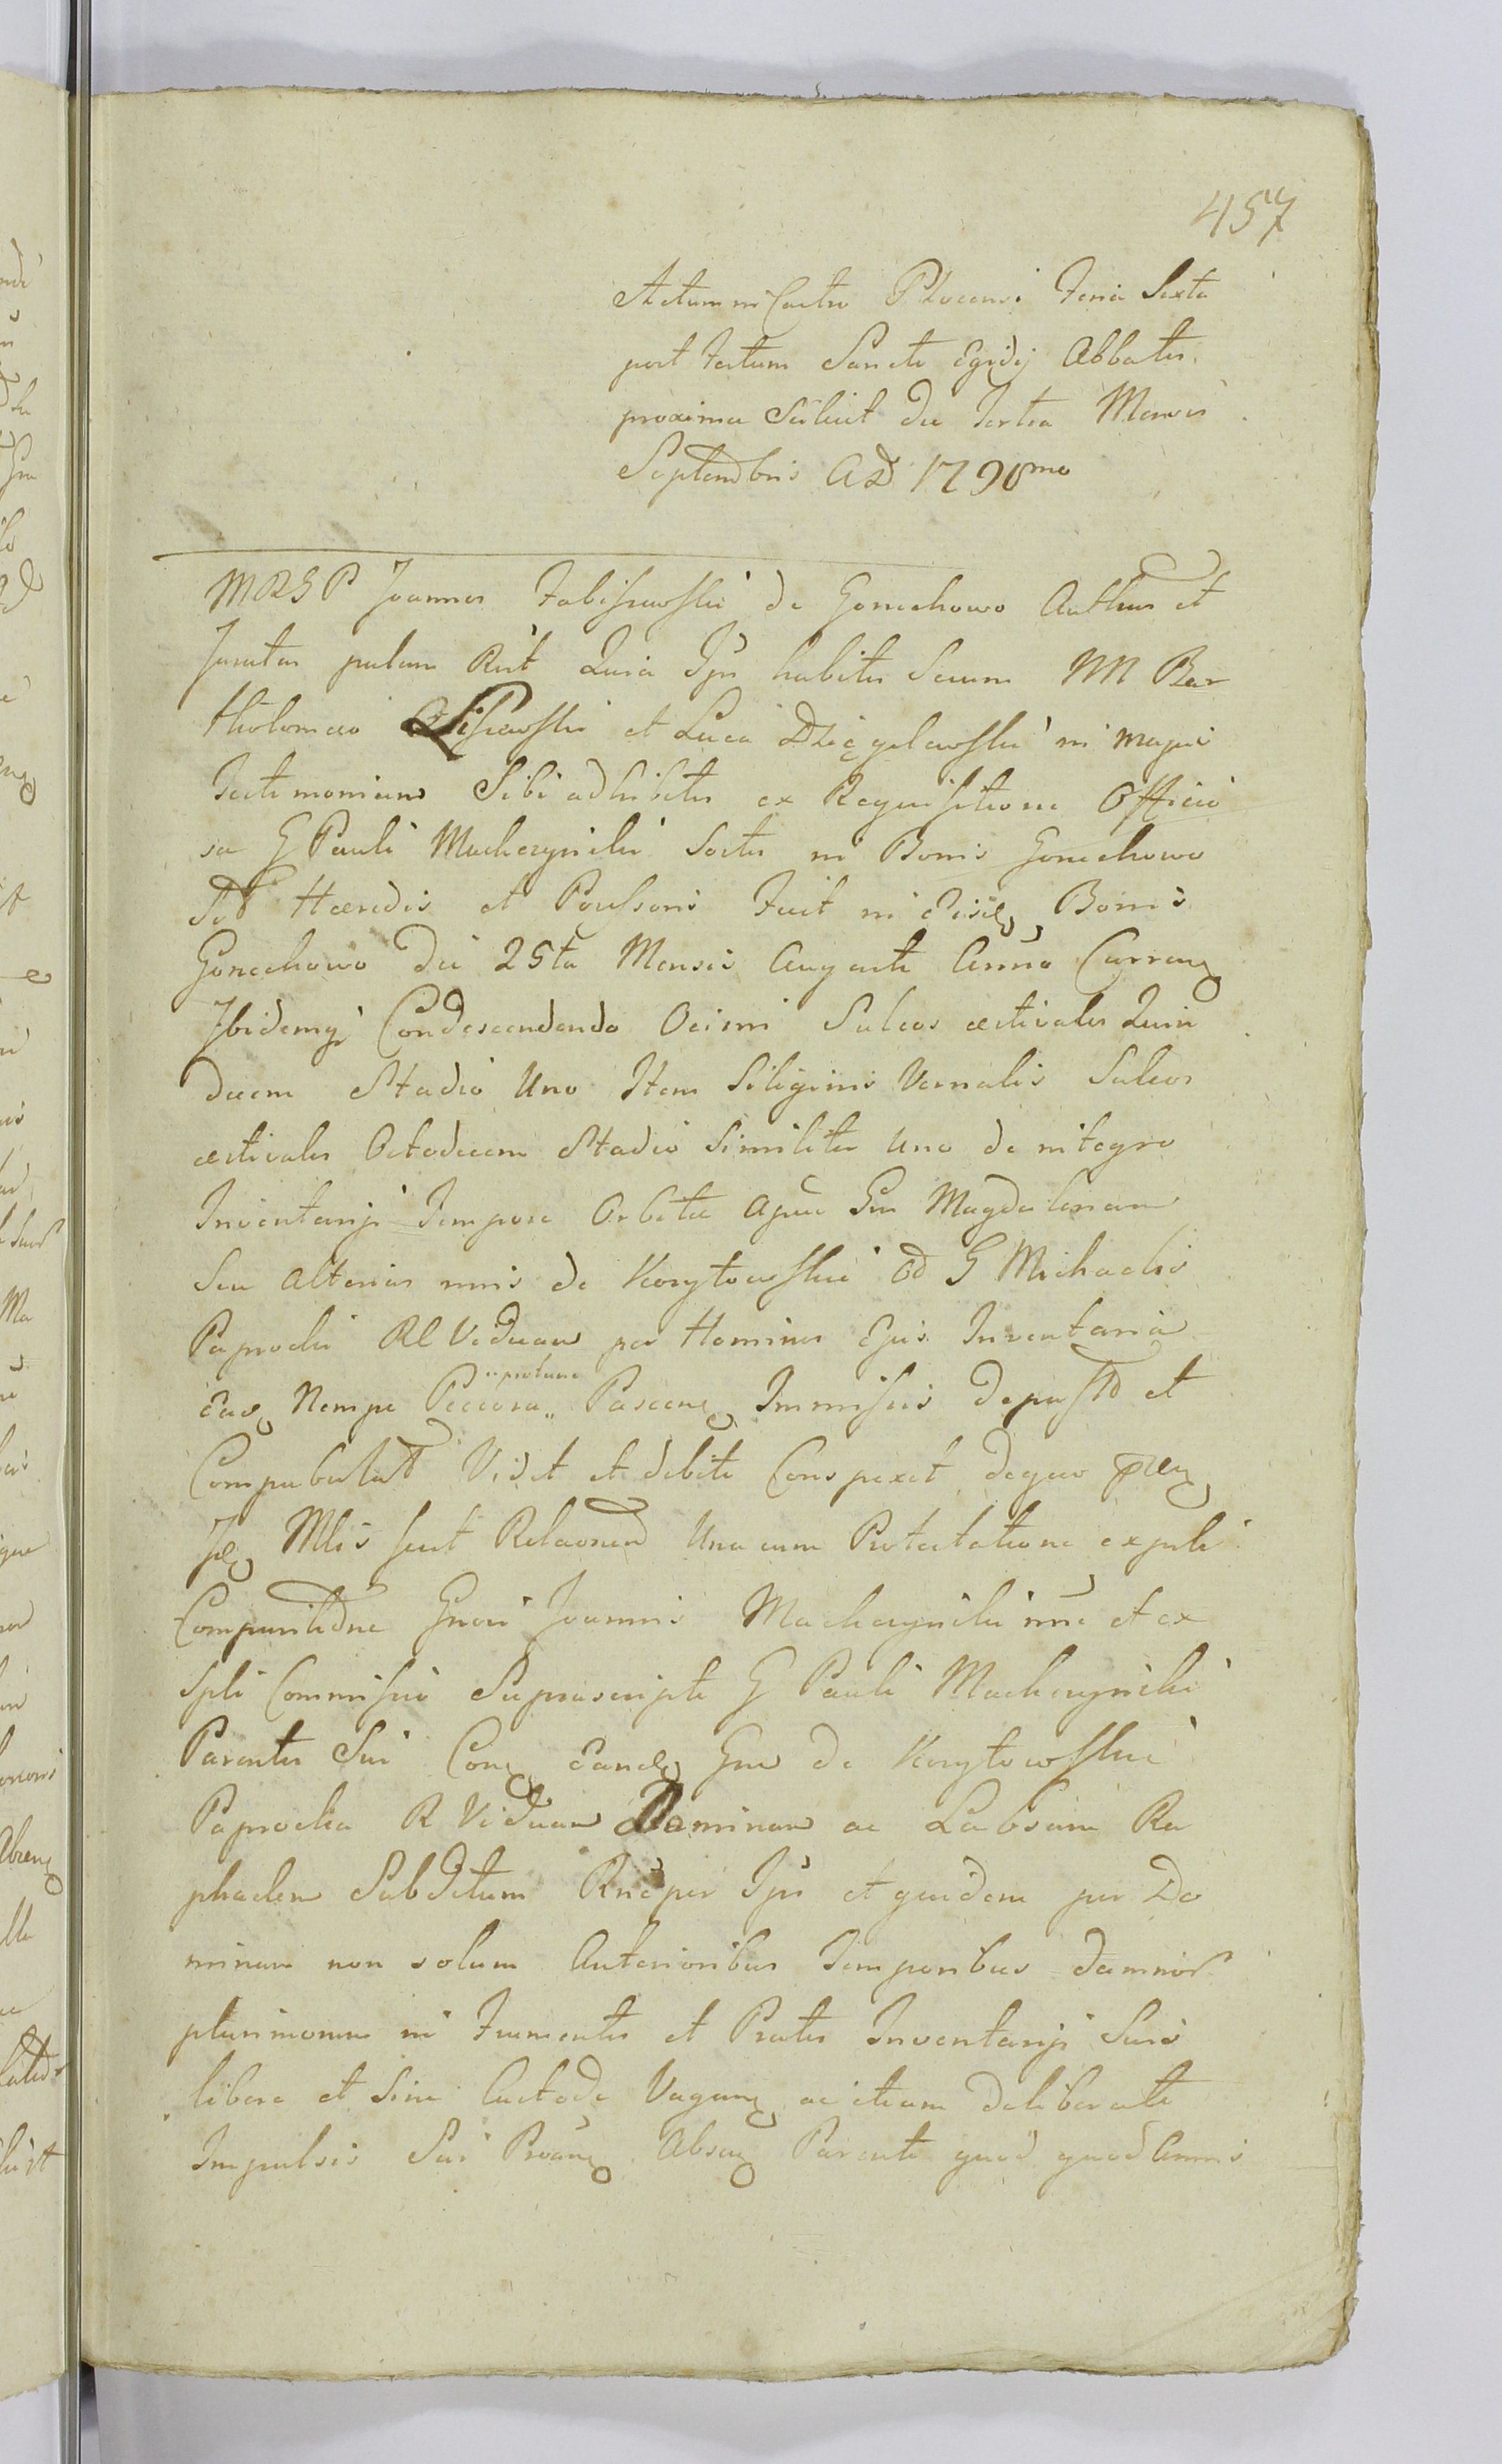 457
Actum in Castro Plocensi Feria Sexta
post Festum Sancti Egidij Abbatis
proxima Scilicet die Tertia Mensis
Septembris AD 1790mo
MRGP Joannes Fabiszewski de Gonechowo Authus et
Juratus palam Rcit Quia Ips habitis Secum NN Bar
tholomeo Olszewski et Luca Dzięgelewski in majus
Testimonium Sibi adhibitis ex Requisitione Officio
sa G Pauli Macherzynski Sortis in Bonis Gonechowo
Sit Hæredis et Possessoris Fuit in Eisd Bonis
Gonechowo die 25ta Mensis Augusti Anno Curren
Ibidemq Condescendendo Ocimi Sulcos æstivales Quin
decem Stadio Uno Item Siliginis Vernalis Sulcos
æstivales Octodecem Stadio Similiter Uno de integro
Inventarij Tempore Orbitæ Apud Gm Magdalenam
Seu Alterius nnis de Korytowskie Od G Michaelis
Paprocki Rl Viduam per Homines Ejus Inventaria
Ead Nempe Peccora " Pascen Immissis depast et
" protunc
Compabulat Vidit et debite Conspexit de quo præn
se Mlis fecit Relaonem Una cum Protestatione ex prti
Comparitione Gnosi Joannis Macherzynski nne et ex
Spli Commisso Suprascripti G Pauli Macherzynski
Parentis Sui Con Eand Gm de Korytowskie
Paprocka R Viduam Dominam ac Labsam Ra
phaelem Subditum Rne per Ips et quidem per Do
minam non solum Anterioribus Temporibus damnor
plurimorum in Frumentis et Pratis Inventarijs Suis
libere et Sine Custode Vagan ac etiam deliberate
Impulsis Sui Proan Absen Parenti quod quod Annis